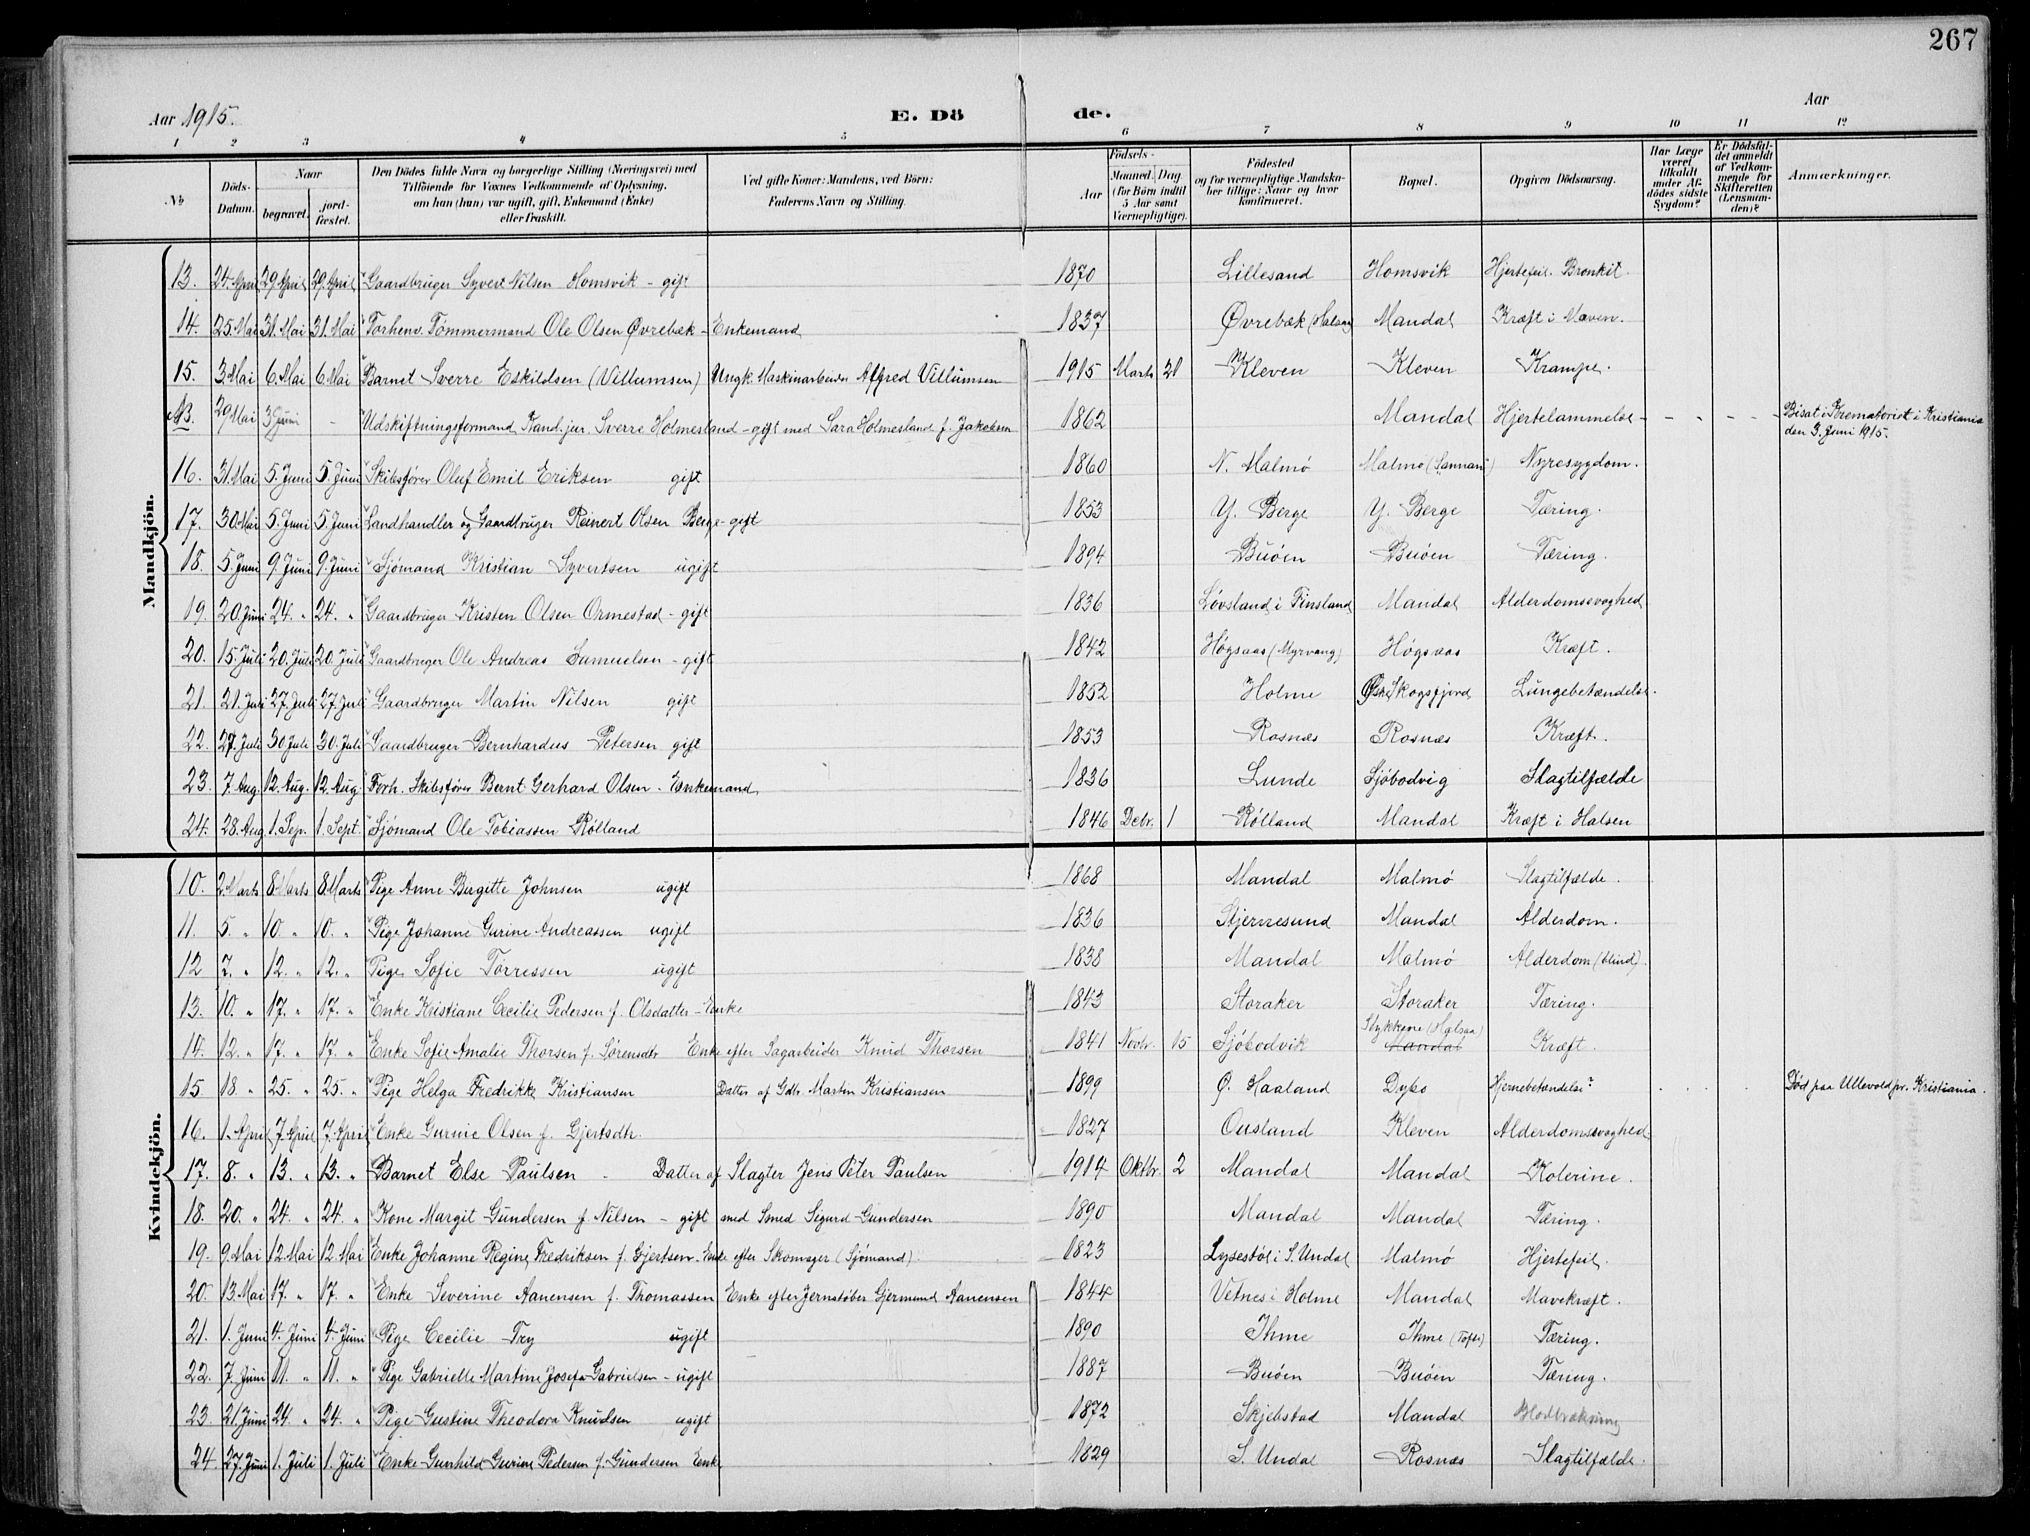 267
Aar 1915. E. Dö de. Aar
1 2 3 4 5 6 7 8 9 10 11 12
№ Döds-Datum. Naar begravet. jord-fæstet. Den Dödes fulde Navn og borgerlige Stilling (Næringsvei) med Tilföiende for Voxnes Vedkommende af Oplysning, om han (hun) var ugift, gift, Enkemand (Enke) eller fraskilt. Ved gifte Koner: Mandens, ved Börn: Faderens Navn og Stilling. Födsels- Aar Maaned. Dag (for Börn indtil 5 Aar samt Værnepligtige). Födested og for værnepligtige Mandskaber tillige: Naar og hvor konfirmeret. Bopæl. Opgiven Dödsaarsag. Har Læge været tilkaldt under Afdödes sidste Sygdom? Er Dödsfaldet anmeldt af Vedkommende for Skifteretten (Lensmanden)? Anmærkninger.
Mandkjön.
13. 24. April 29 April 29. April Gaardbruger Syvert Nilsen Homsvik - gift 1870 Lillesand Homsvik Hjertefeil. Bronkit.
14. 25. Mai 31. Mai 31. Mai Forhenv. Tømmermand Ole Olsen Øvrebæk - Enkemand 1837 Øvrebæk (Halsaa) Mandal Kræft i Maven.
15. 3. Mai 6. Mai 6. Mai Barnet Sverre Eskildsen (Villumsen) Ungk. Maskinarbeider Alfred Villumsen 1915 Marts 20 Kleven Kleven Krampe.
29 Mai 3 Juni - Udskiftningsformand, Kand. jur. Sverre Holmesland - gift med Sara Holmesland f. Jakobsen 1862 Mandal Hjertelammelse - - - - Bisat i Krematoriet i Kristiania
den 3. Juni 1915.
16. 31. Mai 5. Juni 5. Juni Skibsfører Oluf Emil Eriksen gift 1860 N. Malmø Malmø (Sannan) Nyresygdom.
17. 30. Mai 5. Juni 5. Juni Landhandler og Gaardbruger Reinert Olsen Berge - gift 1853 Y. Berge Y. Berge Tæring.
18. 5. Juni 9. Juni 9. Juni Sjømand Kristian Syvertsen ugift 1894 Buøen Buøen Tæring.
19. 20. Juni 24. " 24. " Gaardbruger Kristen Olsen Ormestad - gift 1836 Løvsland i Finsland Mandal Alderdomssvaghed
20. 15. Juli 20. Juli 20. Juli Gaardbruger Ole Andreas Samuelsen - gift 1842 Høgsaas (Myrvang) Høgsaas Kræft.
21. 21. Juli 27. Juli 27. Juli Gaardbruger Martin Nilsen gift 1852 Holme Skogsfjord Lungebetændelse.
22. 27. Juli 30. Juli 30. Juli Gaardbruger Bernhardus Petersen gift 1853 Rosnæs Rosnæs Kræft.
23. 7. Aug. 12. Aug. 12. Aug Forh. Skibsfører Bernt Gerhard Olsen - Enkemand 1836 Lunde Sjøbodvig Slagtilfælde
24. 28. Aug 1. Sep. 1. Sept. Sjømand Ole Tobiassen Rølland 1846 Debr. 1 Rølland Mandal Kræft i Halsen
Kvindekjön.
10. 2. Marts 8. Marts 8. Marts Pige Anne Bergitte Johnsen ugift 1868 Mandal Malmø Slagtilfælde.
11. 5. " 10 " 10. " Pige Johanne Gurine Andreassen ugift 1836 Stjernesund Mandal Alderdom.
12 7. " 12. " 12. " Pige Sofie Torressen ugift 1838 Mandal Malmø Alderdom (blind).
13. 10. " 17. " 17. " Enke Kristiane Cecilie Pedersen f. Olsdatter - Enke 1843 Storaker Storaker Tæring.
14. 12. " 17. " 17. " Enke Sofie Amalie Thorsen f. Sørensdtr Enke efter Sagarbeider Knud Thorsen 1841 Novbr. 15 Sjøbodvik Stykkene (Halsaa) Mandal Kræft.
15 18 " 25. " 25. " Pige Helga Fredrikke Kristiansen Datter af Gdbr. Martin Kristiansen 1899 Ø. Haaland Dybo Hjernebetændelse? Død paa Ullevold pr. Kristiania.
16. 1. April 7. April 7. April Enke Gurine Olsen f. Gjertsdtr. 1827 Ousland Kleven Alderdomssvaghed
17. 8. " 13. " 13. " Barnet Else Paulsen - Datter af Slagter Jens Peter Paulsen 1914 Oktbr. 2 Mandal Mandal Kolerine.
18. 20. " 24. " 24. " Kone Margit Gundersen f. Nilsen - gift med Smed Sigurd Gundersen 1890 Mandal Mandal Tæring.
19. 9. Mai 12. Mai 12. Mai Enke Johanne Regine Fredriksen f. Gjertsen. Enke efter Skomager (Sjømand). 1823 Lysestøl i S. Undal Malmø Hjertefeil.
20. 13. Mai 17. " 17. " Enke Severine Aanensen f. Thomassen Enke efter Jernstøber Gjermund Aanensen 1844 Vetnes i Holme Mandal Mavekræft.
21. 1. Juni 4. Juni 4. Juni Pige Cecilie Try ugift 1890 Ihme Ihme (Tofte) Tæring.
22. 7 Juni 11. " 11. " Pige Gabrielle Martine Josefa Gabrielsen - ugift 1887 Buøen Buøen Tæring.
23. 21. Juni 24. " 24. " Pige Gustine Theodora Knudsen ugift 1872 Skjebstad Mandal Blodbrækning
24. 27. Juni 1. Juli 1. Juli Enke Gunhild Gurine Pedersen f. Gundersen Enke 1829 S. Undal Rosnæs Slagtilfælde.